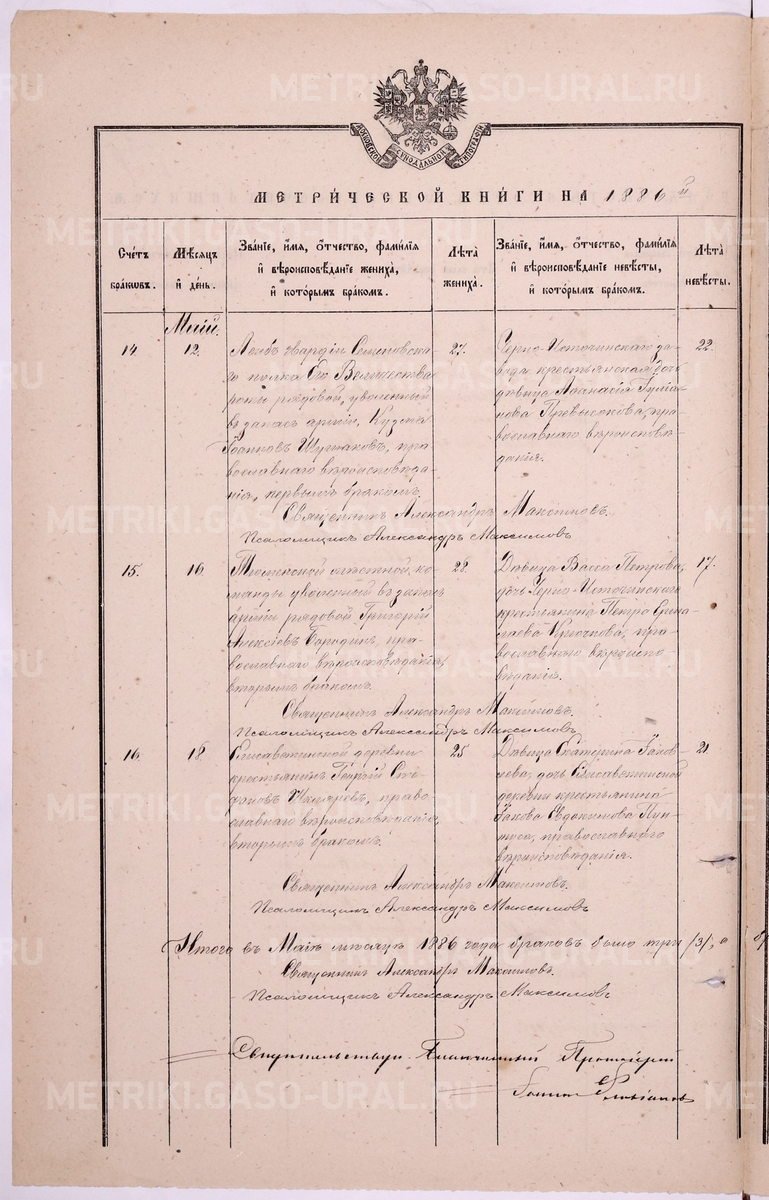 МОСКОВСКОЙ СУНОДАЛЬНОЙ ТИПОГРАФІИ
МЕТРИ́ЧЕСКОЙ КНИ́ГИ НА 1886 й
Сче́тъ бра́ковъ.
Мѣ́сѧцъ и҆ де́нь.
Зва́нїе, и҆́мѧ, ѻ҆́тчество, фами́лїѧ и҆ вѣроисповѣ́данїе жениха̀, и҆ кото́рымъ бра́комъ.
Лѣ́та жениха̀.
Зва́нїе, и҆́мѧ, ѻ҆́тчество, фами́лїѧ и҆ вѣроисповѣ́данїе невѣ́сты, и҆ кото́рымъ бра́комъ.
Лѣ́та невѣ́сты.
Май.
14.
12.
Лейбъ гвардіи Семеновска-
го полка Его Величества
роты рядовой, уволенный
въ запасъ арміи, Кузма
Іоанновъ, пра-
вославнаго вѣроисповѣда-
нія, первымъ бракомъ.
27.
Черно-Источинскаго за-
вода крестьянская дочь
дѣвица Афанасія
пра-
вославнаго вѣроисповѣ-
данія.
22.
Священникъ Александръ Максимовъ.
Псаломщикъ Александръ Максимовъ
15.
16.
Тюменской мѣстной ко-
манды уволенный въ запасъ
арміи рядовой Григорій
Алексѣевъ Бородинъ, пра-
вославнаго вѣроисповѣданія,
вторымъ бракомъ.
28.
Дѣвица Васса Петрова,
дочь Черно-Источинскаго
крестьянина Петра
Крючкова, пра-
вославнаго вѣроиспо-
вѣданія.
17.
Священникъ Александръ Максимовъ.
Псаломщикъ Александръ Максимовъ
16.
18.
Елисаветинской деревни
крестьянинъ Георгій Сте-
фановъ, право-
славнаго вѣроисповѣданія,
вторымъ бракомъ.
25
Дѣвица Екатерина Іаков-
лева, дочь Елисаветинской
деревни крестьянина
Іакова Евдокимова
православнаго
вѣроисповѣданія.
21.
Священникъ Александръ Максимовъ.
Псаломщикъ Александръ Максимовъ
Итого въ Маѣ мѣсяцѣ 1886 года браковъ было три /3/.
Священникъ Александръ Максимовъ.
Псаломщикъ Александръ Максимовъ
Благочинный Протоіерей
METRIKI.GASO-URAL.RU